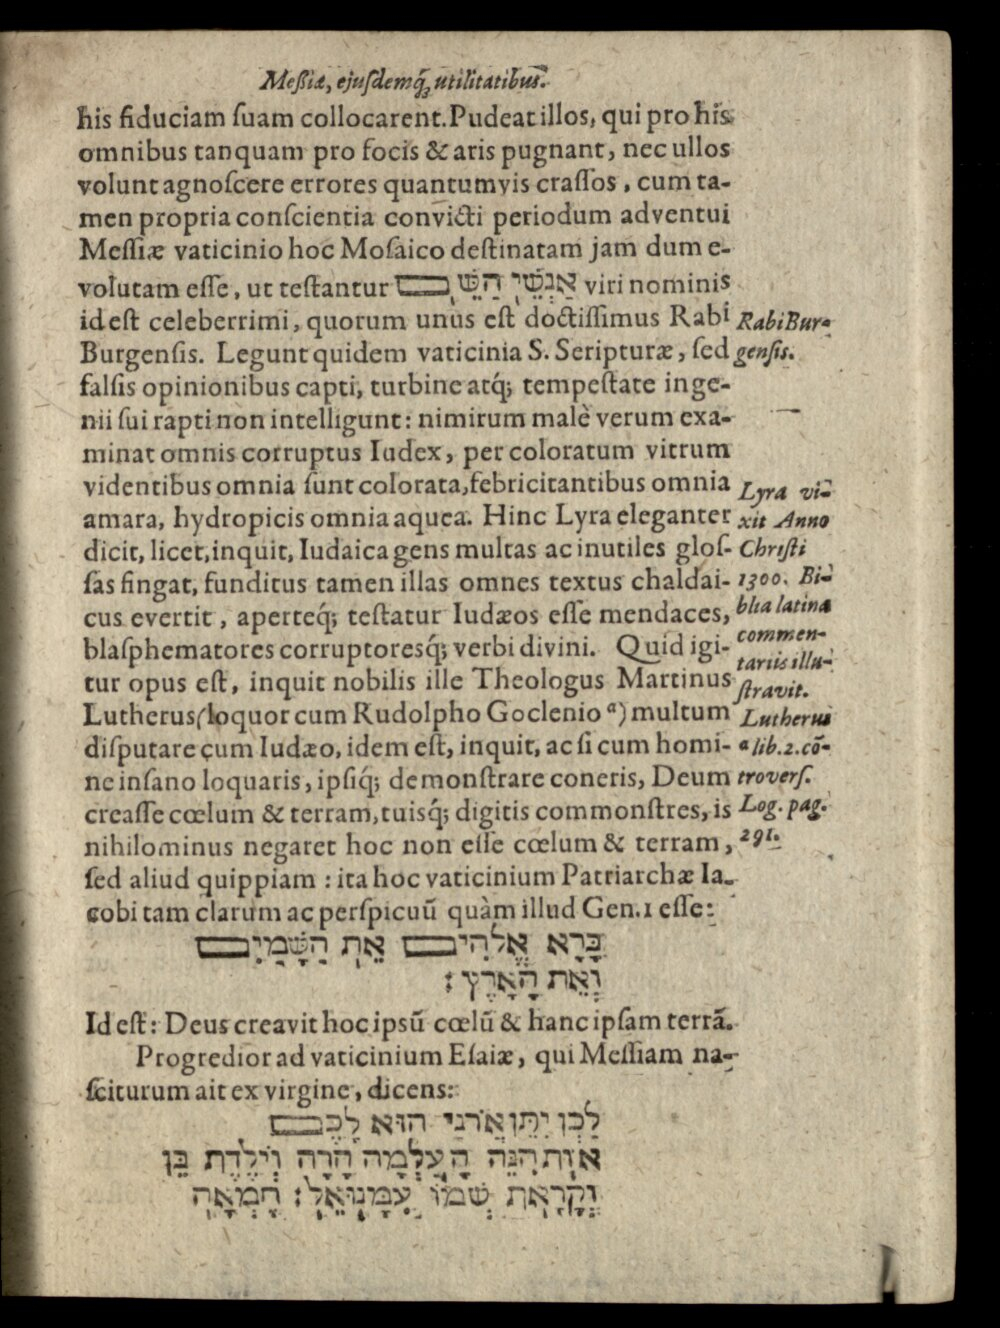 Meßiæ, ejusdemq́; utilitatibus.
his fiduciam suam collocarent. Pudeat illos, qui pro his
omnibus tanquam pro focis & aris pugnant, nec ullos
volunt agnoscere errores quantumvis crassos, cum ta-
men propria conscientia convicti periodum adventui
Messiæ vaticinio hoc Mosaico destinatam jam dum e-
volutam esse, ut testantur אַנְשֵׁי הַשֵּׁם viri nominis
id est celeberrimi, quorum unus est doctissimus Rabi
Burgensis. Legunt quidem vaticinia S. Scripturæ, sed
falsis opinionibus capti, turbine atq́; tempestate inge-
nii sui rapti non intelligunt: nimirum malè verum exa-
minat omnis corruptus Iudex, per coloratum vitrum
videntibus omnia sunt colorata, febricitantibus omnia
amara, hydropicis omnia aquea. Hinc Lyra eleganter
dicit, licet, inquit, Iudaica gens multas ac inutiles glos-
sas fingat, funditus tamen illas omnes textus chaldai-
cus evertit, aperteq́; testatur Iudæos esse mendaces,
blasphematores corruptoresq́; verbi divini. Quid igi-
tur opus est, inquit nobilis ille Theologus Martinus
Lutherus (loquor cum Rudolpho Goclenio ᵃ) multum
disputare cum Iudæo, idem est, inquit, ac si cum homi-
ne insano loquaris, ipsiq́; demonstrare coneris, Deum
creasse cœlum & terram, tuisq́; digitis commonstres, is
nihilominus negaret hoc non esse cœlum & terram,
sed aliud quippiam: ita hoc vaticinium Patriarchæ Ia-
cobi tam clarum ac perspicuū quàm illud Gen. 1 esse:
בָּרָא אֱלֹהִים אֵת הַשָּׁמַיִם
וְאֵת הָאָרֶץ׃
Id est: Deus creavit hoc ipsū cœlū & hanc ipsam terrā.
Progredior ad vaticinium Esaiæ, qui Messiam na-
sciturum ait ex virgine, dicens:
לָכֵן יִתֵּן אֲדֹנָי הוּא לָכֶם
אוֹת הִנֵּה הָעַלְמָה הָרָה וְיֹלֶדֶת בֵּן
וְקָרָאת שְׁמוֹ עִמָּנוּאֵל׃ חֶמְאָה
Rabi Bur-
gensis.
Lyra vi-
xit Anno
Christi
1300. Bi-
blia latina
commen-
tariis illu-
stravit.
Lutherus
ᵃ lib. 2. cō-
trovers.
Log. pag.
291.